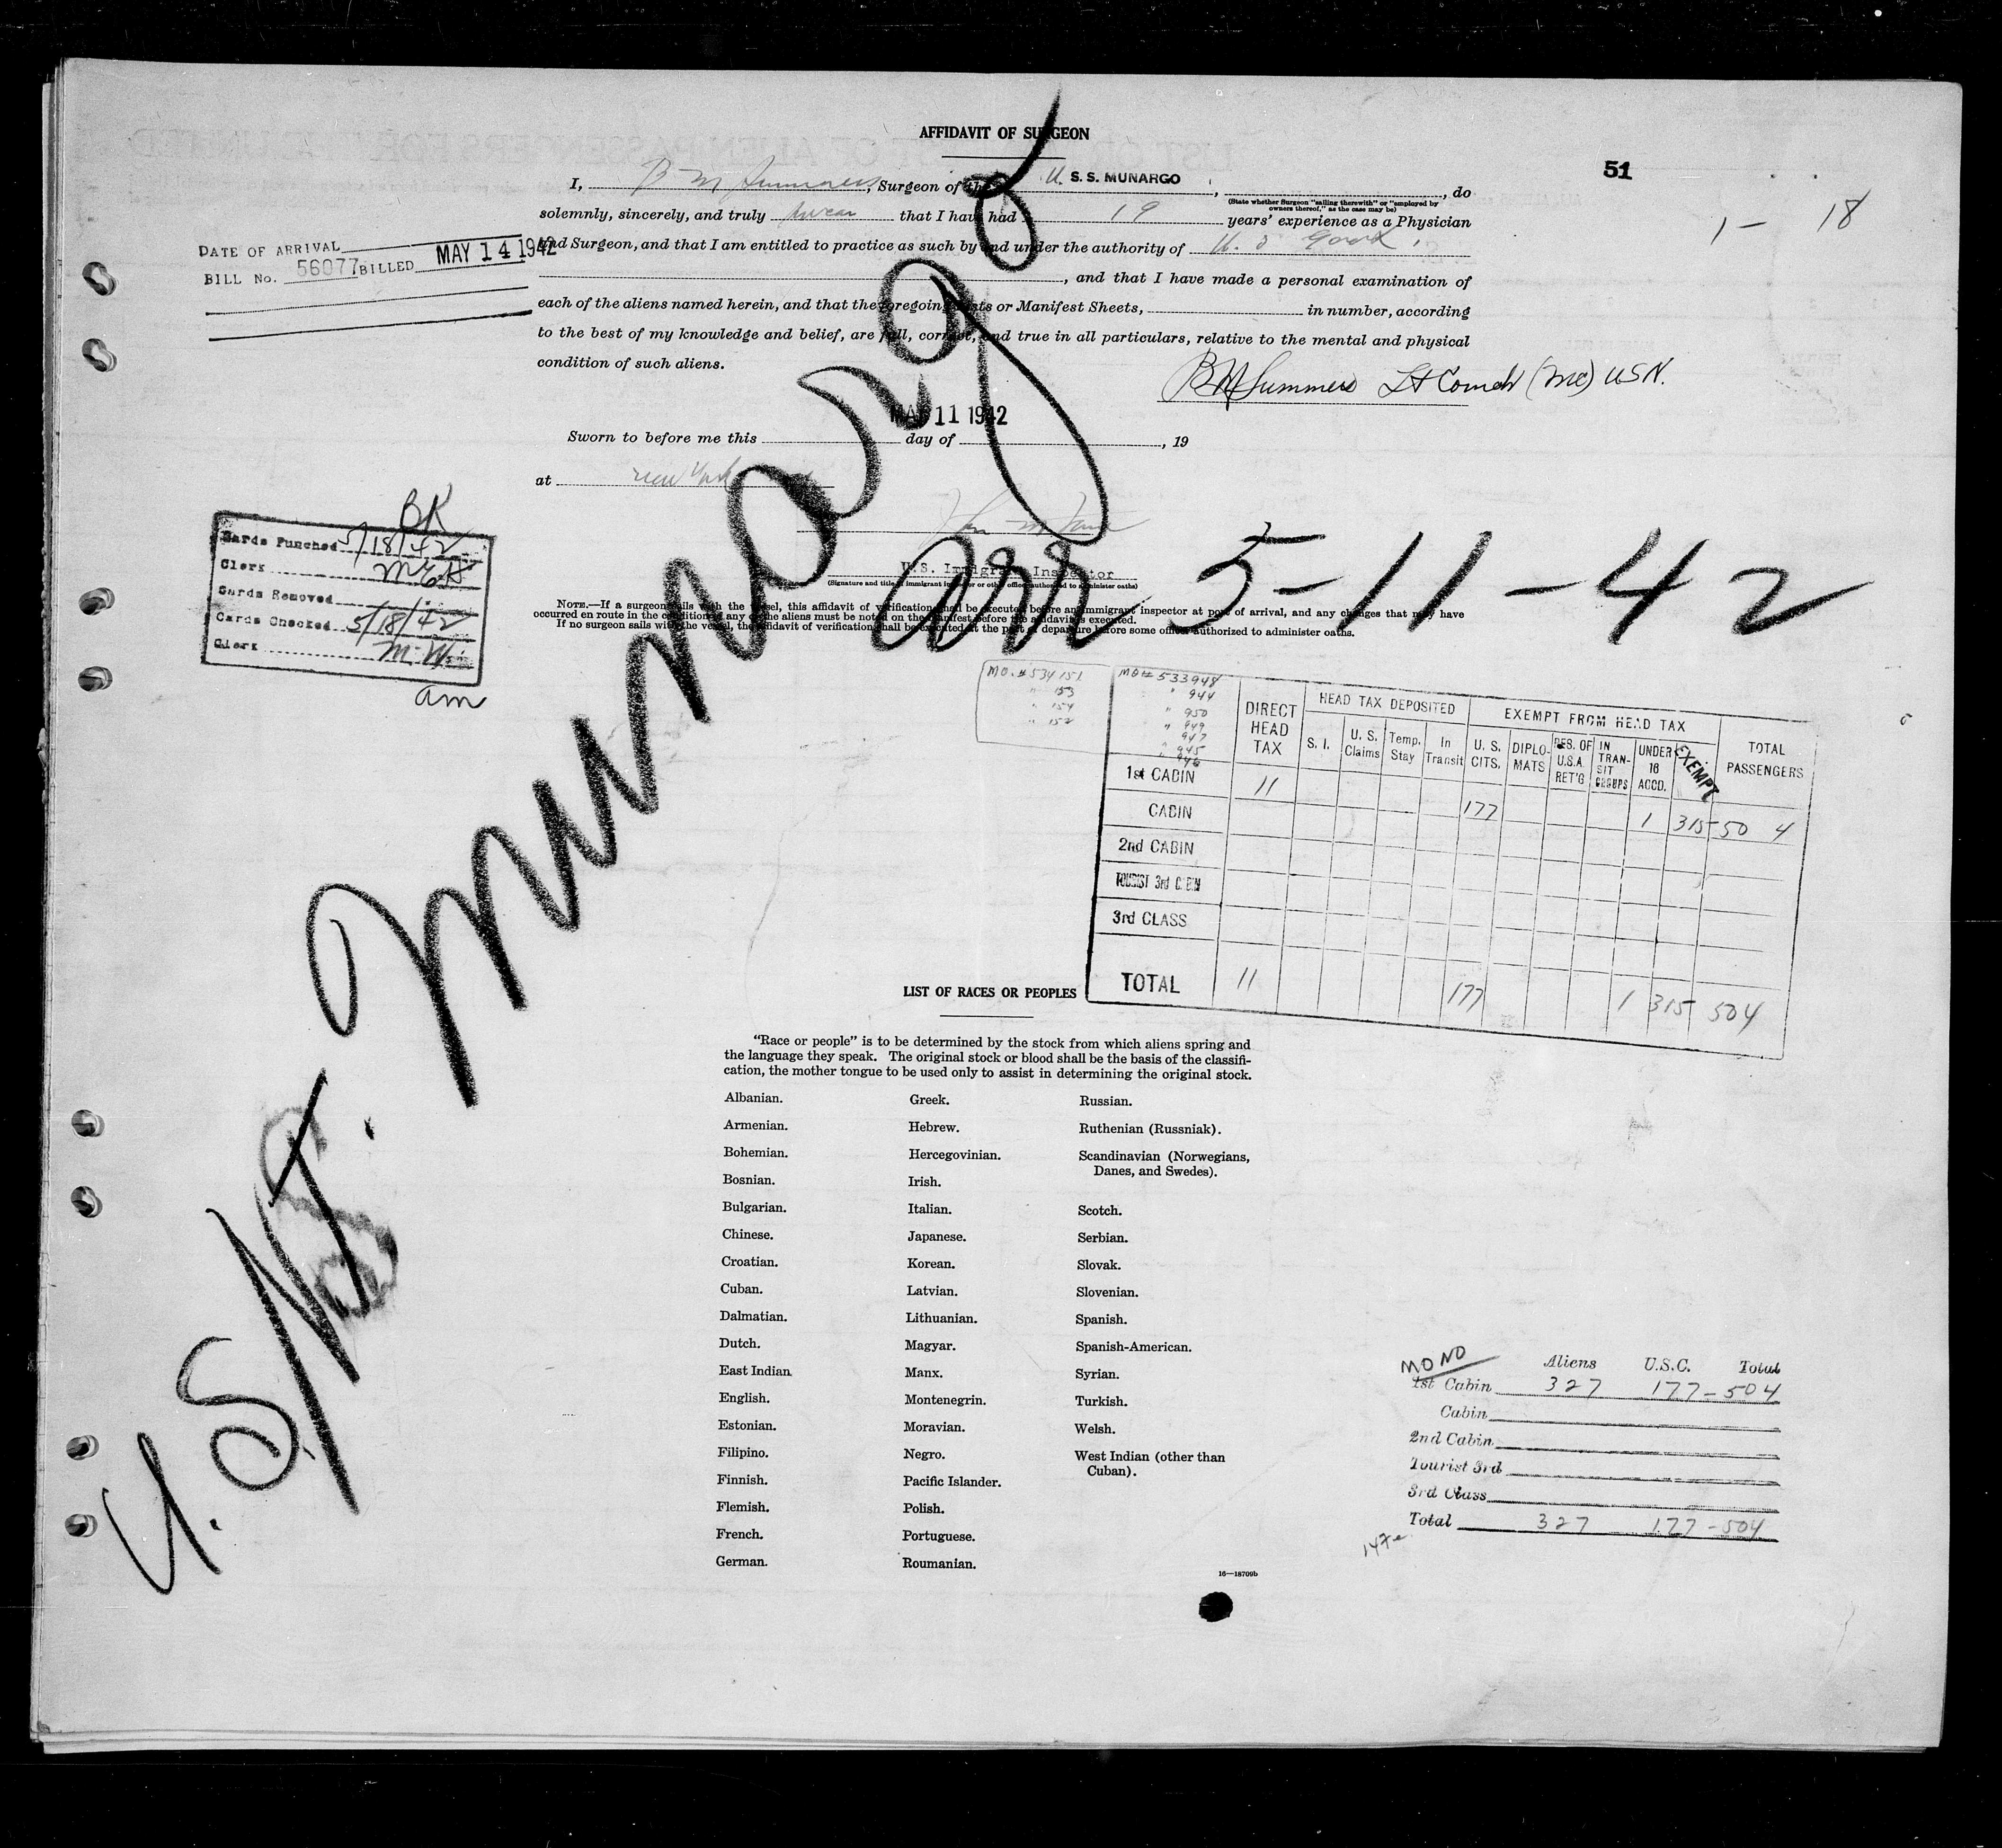 AFFIDAVIT OF SURGEON
51
1 - 18
I, B M Summers, Surgeon of the U. S. S. MUNARGO, , do
(State whether Surgeon "sailing therewith" or "employed by
owners thereof," as the case may be)
solemnly, sincerely, and truly swear that I have had 19 years' experience as a Physician
and Surgeon, and that I am entitled to practice as such by and under the authority of U. S Govt.
, and that I have made a personal examination of
each of the aliens named herein, and that the foregoing Lists or Manifest Sheets, in number, according
to the best of my knowledge and belief, are full, correct, and true in all particulars, relative to the mental and physical
condition of such aliens.
BM Summers Lt Comdr (MC) USN.
DATE OF ARRIVAL
BILL No. 56077 BILLED MAY 14 1942
MAY 11 1942
Sworn to before me this day of , 19
at New York
U.S. Immigrant Inspector
(Signature and title of immigrant inspector or other officer authorized to administer oaths)
NOTE.—If a surgeon sails with the vessel, this affidavit of verification shall be executed before an immigrant inspector at port of arrival, and any changes that may have
occurred en route in the condition of any of the aliens must be noted on the manifest before the affidavit is executed.
If no surgeon sails with the vessel, the affidavit of verification shall be executed at the port of departure before some officer authorized to administer oaths.
U.S.N.T. Munargo
arr 5-11-42
BK
Cards Punched 5/18/42
Clerk
Cards Removed
Cards Checked 5/18/42
Clerk
am
MO. # 534151
" 153
" 154
" 152
MO # 533948
" 944
" 950
" 949
" 947
" 945
" 946
DIRECT HEAD TAX
HEAD TAX DEPOSITED
EXEMPT FROM HEAD TAX
TOTAL PASSENGERS
S. I.
U. S. Claims
Temp. Stay
In Transit
U. S. CITS.
DIPLOMATS
RES. OF U.S.A. RET'G
IN TRANSIT GROUPS
UNDER 16 ACCD.
EXEMPT
1st CABIN 11
CABIN 177 1 315 50 4
2nd CABIN
TOURIST 3rd CABIN
3rd CLASS
TOTAL 11 177 1 315 504
LIST OF RACES OR PEOPLES
"Race or people" is to be determined by the stock from which aliens spring and
the language they speak. The original stock or blood shall be the basis of the classifi-
cation, the mother tongue to be used only to assist in determining the original stock.
Albanian.
Armenian.
Bohemian.
Bosnian.
Bulgarian.
Chinese.
Croatian.
Cuban.
Dalmatian.
Dutch.
East Indian.
English.
Estonian.
Filipino.
Finnish.
Flemish.
French.
German.
Greek.
Hebrew.
Hercegovinian.
Irish.
Italian.
Japanese.
Korean.
Latvian.
Lithuanian.
Magyar.
Manx.
Montenegrin.
Moravian.
Negro.
Pacific Islander.
Polish.
Portuguese.
Roumanian.
Russian.
Ruthenian (Russniak).
Scandinavian (Norwegians,
Danes, and Swedes).
Scotch.
Serbian.
Slovak.
Slovenian.
Spanish.
Spanish-American.
Syrian.
Turkish.
Welsh.
West Indian (other than
Cuban).
16—18709b
MONO
Aliens U.S.C. Total
1st Cabin 327 177 - 504
Cabin
2nd Cabin
Tourist 3rd
3rd Class
Total 327 177 - 504